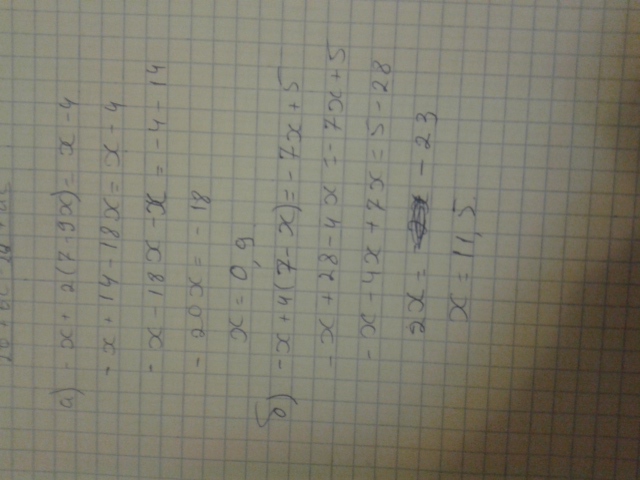 а) - x + 2(7-9x) = x - 4
- x + 14 - 18x = x - 4
- x - 18x - x = - 4 - 14
- 20x = - 18
x = 0,9
б) - x + 4(7 - x) = - 7x + 5
- x + 28 - 4x = - 7x + 5
- x - 4x + 7x = 5 - 28
2x = - 23
x = 11,5